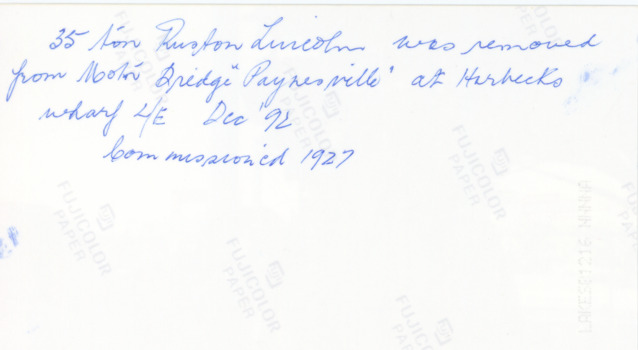 35 ton Ruston Lincoln was removed
from Motor Dredge "Paynesville" at Harbecks
wharf L/E Dec '92
Commissioned 1927
FUJICOLOR
PAPER
FUJICOLOR
PAPER
FUJICOLOR
PAPER
FUJICOLOR
PAPER
FUJICOLOR
PAPER
FUJICOLOR
PAPER